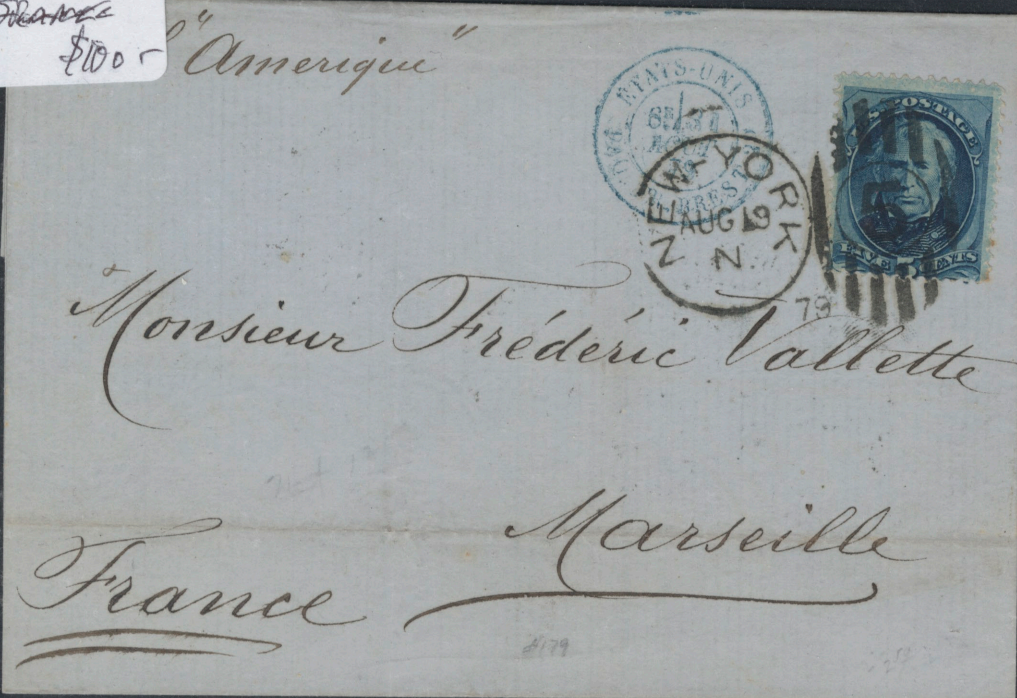 $100-
"Amerique"
ETATS-UNIS
BREST
NEW-YORK
AUG 19
Z
79
U.S. POSTAGE
5
FIVE 5 CENTS
Monsieur Frédéric Vallette
Marseille
France
#179